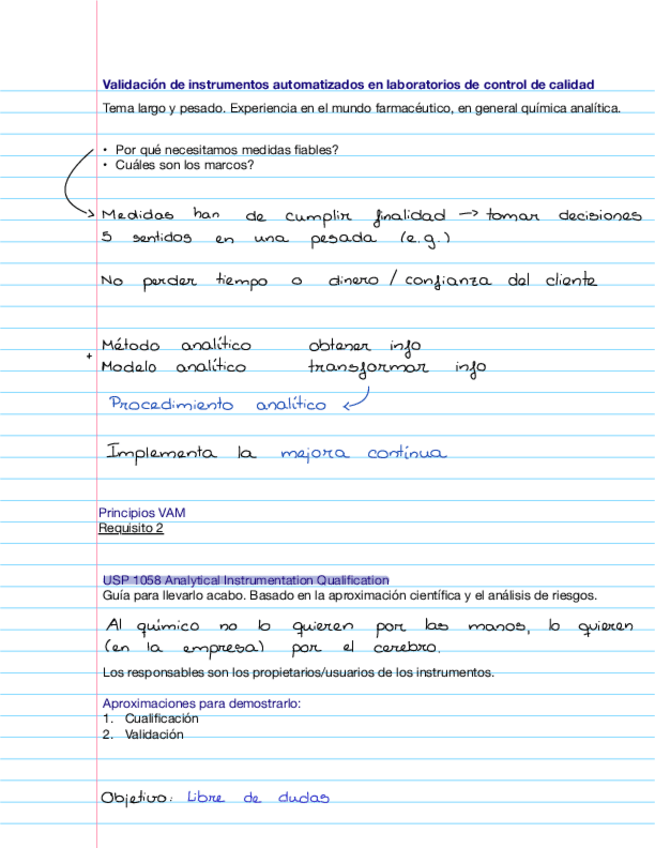 Validación de instrumentos automatizados en laboratorios de control de calidad
Tema largo y pesado. Experiencia en el mundo farmacéutico, en general química analítica.
• Por qué necesitamos medidas fiables?
• Cuáles son los marcos?
Medidas han de cumplir finalidad → tomar decisiones
5 sentidos en una pesada (e.g.)
No perder tiempo o dinero / confianza del cliente
Método analítico obtener info
+ Modelo analítico transformar info
Procedimiento analítico
Implementa la mejora continua
Principios VAM
Requisito 2
USP 1058 Analytical Instrumentation Qualification
Guía para llevarlo acabo. Basado en la aproximación científica y el análisis de riesgos.
Al químico no lo quieren por las manos, lo quieren
(en la empresa) por el cerebro.
Los responsables son los propietarios/usuarios de los instrumentos.
Aproximaciones para demostrarlo:
1. Cualificación
2. Validación
Objetivo: Libre de dudas